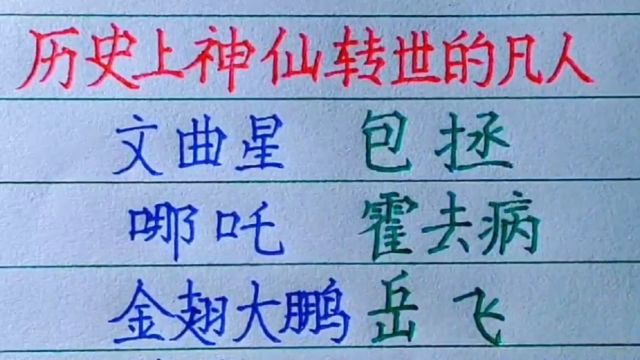 历史上神仙转世的凡人
文曲星 包拯
哪吒 霍去病
金翅大鹏 岳飞